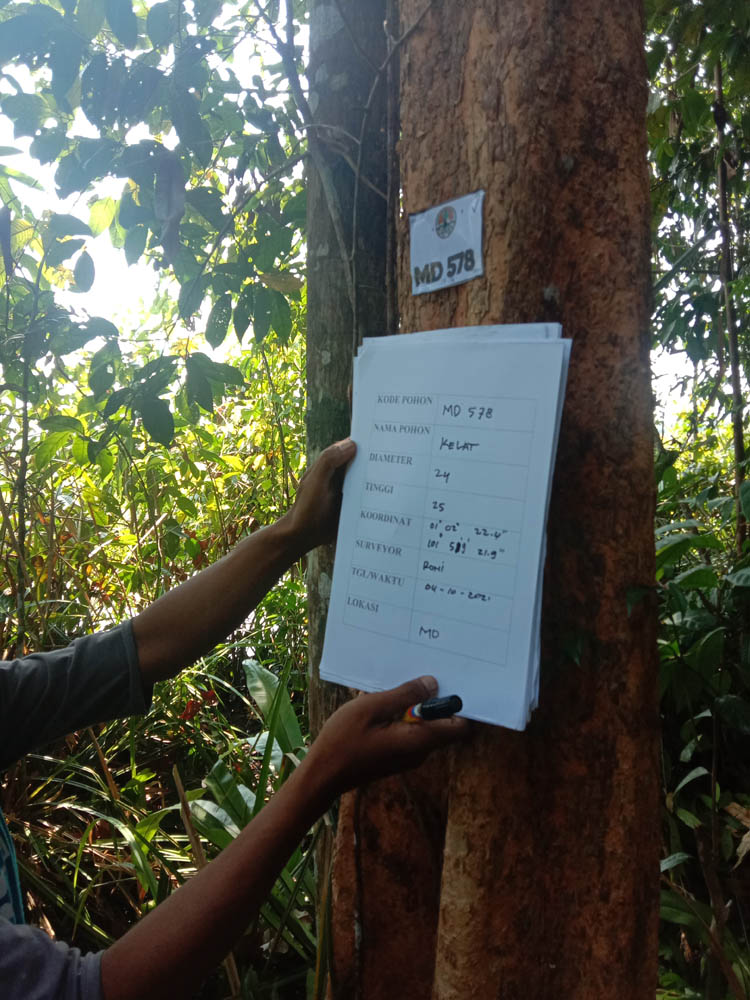 MD 578
KODE POHON MD 578
NAMA POHON KELAT
DIAMETER 24
TINGGI 25
KOORDINAT 01° 02' 22.4"
101° 21.9"
SURVEYOR ROMI
TGL/WAKTU 04-10-2021
LOKASI MD